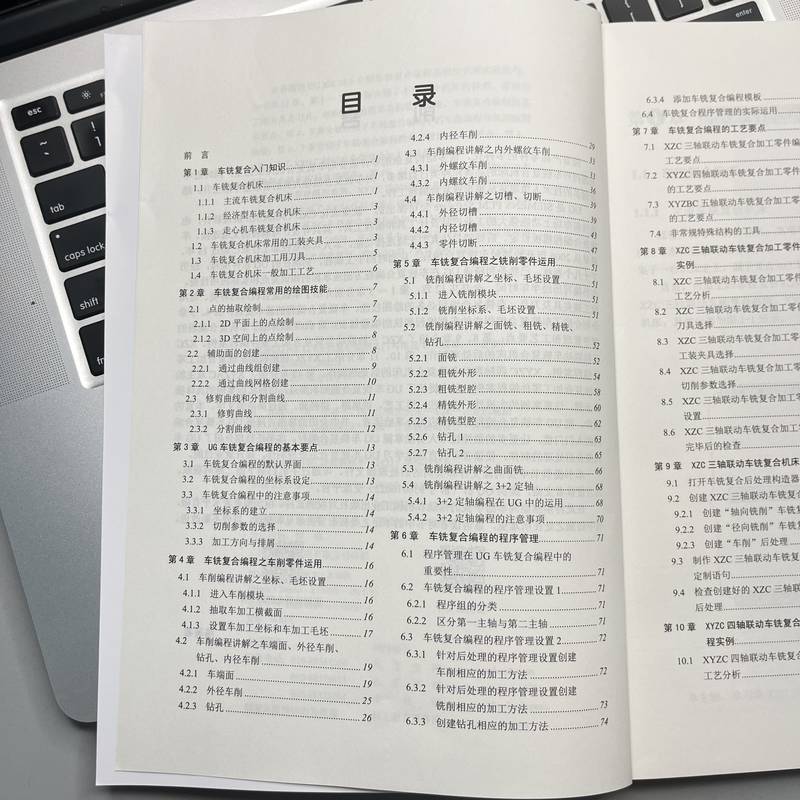 esc
tab
caps lock
shift
fn
enter
目 录
前 言
第1章 车铣复合入门知识 1
1.1 车铣复合机床 1
1.1.1 主流车铣复合机床 1
1.1.2 经济型车铣复合机床 3
1.1.3 走心机车铣复合机床 3
1.2 车铣复合机床常用的工装夹具 3
1.3 车铣复合机床加工用刀具 5
1.4 车铣复合机床一般加工工艺 6
第2章 车铣复合编程常用的绘图技能 7
2.1 点的抽取绘制 7
2.1.1 2D平面上的点绘制 7
2.1.2 3D空间上的点绘制 8
2.2 辅助面的创建 8
2.2.1 通过曲线组创建 9
2.2.2 通过曲线网格创建 10
2.3 修剪曲线和分割曲线 11
2.3.1 修剪曲线 11
2.3.2 分割曲线 12
第3章 UG车铣复合编程的基本要点 13
3.1 车铣复合编程的默认界面 13
3.2 车铣复合编程的坐标系设定 13
3.3 车铣复合编程中的注意事项 14
3.3.1 坐标系的建立 14
3.3.2 切削参数的选择 14
3.3.3 加工方向与排屑 14
第4章 车铣复合编程之车削零件运用 16
4.1 车削编程讲解之坐标、毛坯设置 16
4.1.1 进入车削模块 16
4.1.2 抽取车加工横截面 16
4.1.3 设置车加工坐标和车加工毛坯 17
4.2 车削编程讲解之车端面、外径车削、
钻孔、内径车削 19
4.2.1 车端面 19
4.2.2 外径车削 25
4.2.3 钻孔 26
4.2.4 内径车削 29
4.3 车削编程讲解之内外螺纹车削 33
4.3.1 外螺纹车削 33
4.3.2 内螺纹车削 36
4.4 车削编程讲解之切槽、切断 39
4.4.1 外径切槽 39
4.4.2 内径切槽 43
4.4.3 零件切断 47
第5章 车铣复合编程之铣削零件运用 51
5.1 铣削编程讲解之坐标、毛坯设置 51
5.1.1 进入铣削模块 51
5.1.2 铣削坐标系、毛坯设置 51
5.2 铣削编程讲解之面铣、粗铣、精铣、
钻孔 52
5.2.1 面铣 52
5.2.2 粗铣外形 54
5.2.3 粗铣型腔 58
5.2.4 精铣外形 60
5.2.5 精铣型腔 62
5.2.6 钻孔1 63
5.2.7 钻孔2 65
5.3 铣削编程讲解之曲面铣 66
5.4 铣削编程讲解之3+2定轴 68
5.4.1 3+2定轴编程在UG中的运用 68
5.4.2 3+2定轴编程的注意事项 70
第6章 车铣复合编程的程序管理 71
6.1 程序管理在UG车铣复合编程中的
重要性 71
6.2 车铣复合编程的程序管理设置1 71
6.2.1 程序组的分类 71
6.2.2 区分第一主轴与第二主轴 71
6.3 车铣复合编程的程序管理设置2 72
6.3.1 针对后处理的程序管理设置创建
车削相应的加工方法 72
6.3.2 针对后处理的程序管理设置创建
铣削相应的加工方法 73
6.3.3 创建钻孔相应的加工方法 74
6.3.4 添加车铣复合编程模板
6.4 车铣复合程序管理的实际运用
第7章 车铣复合编程的工艺要点
7.1 XZC三轴联动车铣复合加工零件编
工艺要点
7.2 XYZC四轴联动车铣复合加工零件
的工艺要点
7.3 XYZBC五轴联动车铣复合加工零
的工艺要点
7.4 非常规特殊结构的工具
第8章 XZC三轴联动车铣复合加工零件
实例
8.1 XZC三轴联动车铣复合加工零件
工艺分析
8.2 XZC三轴联动车铣复合加工零
刀具选择
8.3 XZC三轴联动车铣复合加工零
工装夹具选择
8.4 XZC三轴联动车铣复合加工零
切削参数选择
8.5 XZC三轴联动车铣复合加工零
设置
8.6 XZC三轴联动车铣复合加工零
完毕后的检查
第9章 XZC三轴联动车铣复合机床
9.1 打开车铣复合后处理构造器
9.2 创建XZC三轴联动车铣复合
9.2.1 创建“轴向铣削”车铣复
9.2.2 创建“径向铣削”车铣复
9.2.3 创建“车削”后处理
9.3 制作XZC三轴联动车铣复合
定制语句
9.4 检查创建好的XZC三轴联
后处理
第10章 XYZC四轴联动车铣复合
程实例
10.1 XYZC四轴联动车铣复合
工艺分析